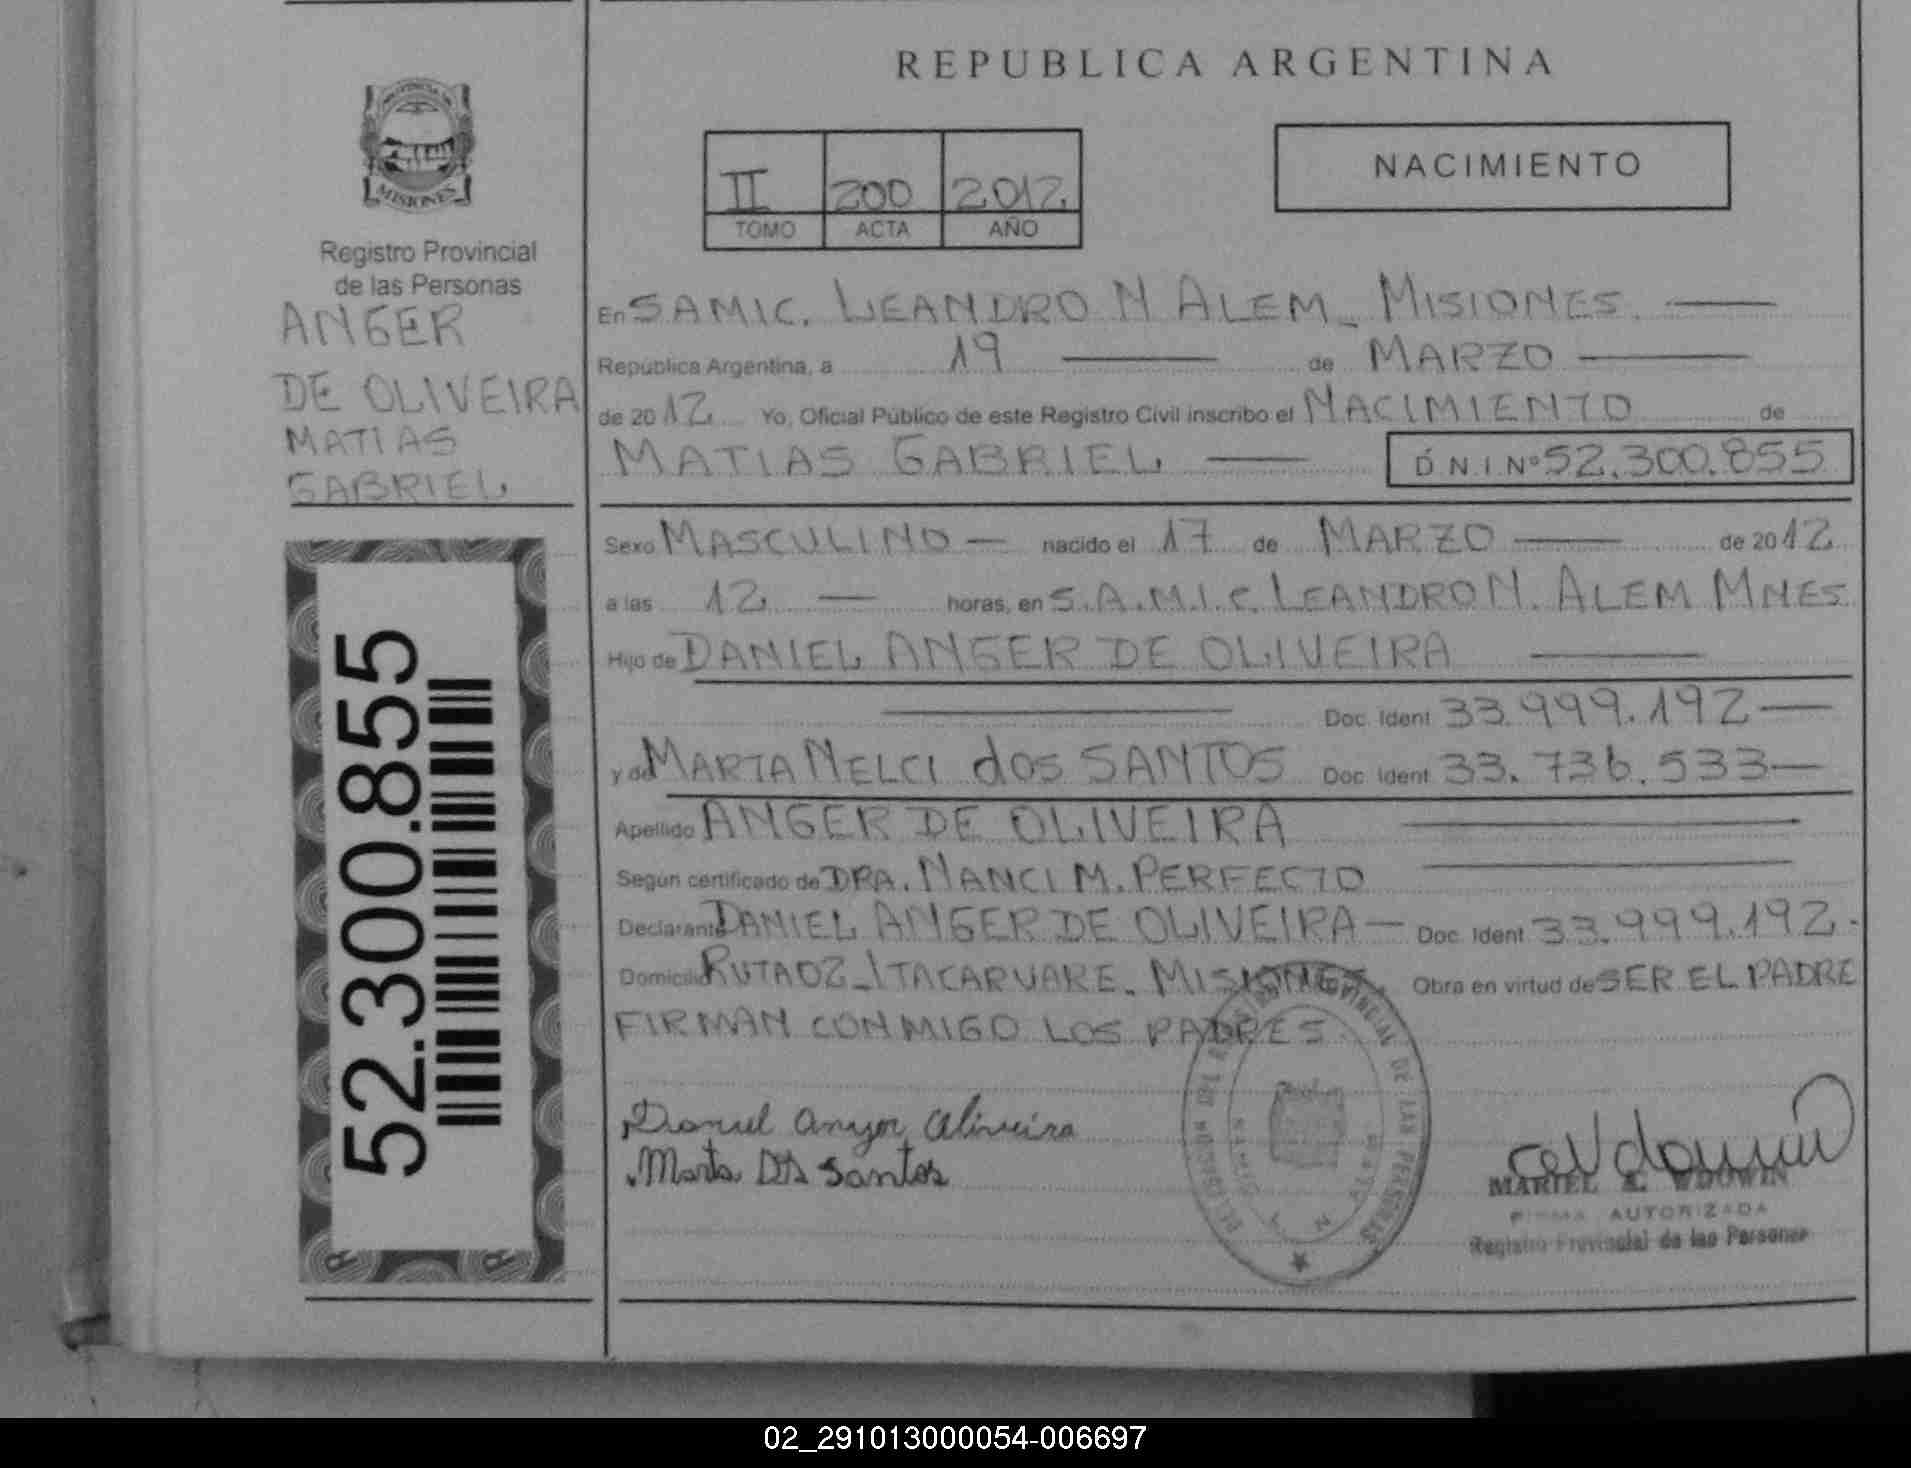 REPUBLICA ARGENTINA
MISIONES
Registro Provincial
de las Personas
ANGER
DE OLIVEIRA
MATIAS
GABRIEL
52.300.855
II 200 2012
TOMO ACTA AÑO
NACIMIENTO
En SAMIC. LEANDRO N ALEM - MISIONES.
República Argentina, a 19 de MARZO
de 2012 Yo, Oficial Público de este Registro Civil inscribo el NACIMIENTO de
MATIAS GABRIEL D.N.I Nº 52.300.855
Sexo MASCULINO nacido el 17 de MARZO de 2012
a las 12 horas, en S.A.M.I.C. LEANDRO N. ALEM MNES
Hijo de DANIEL ANGER DE OLIVEIRA
Doc. Ident 33.999.192
y de MARTA NELCI dos SANTOS Doc. Ident 33.736.533
Apellido ANGER DE OLIVEIRA
Según certificado de DRA. NANCI M. PERFECTO
Declarante DANIEL ANGER DE OLIVEIRA Doc. Ident 33.999.192.
Domicilio RUTA 02 - ITACARUARE. MISIONES. Obra en virtud de SER EL PADRE
FIRMAN CONMIGO LOS PADRES
Daniel Anger Oliveira
Marta Ds Santos
MARIEL A. WDOWIN
FIRMA AUTORIZADA
Registro Provincial de las Personas
02_291013000054-006697